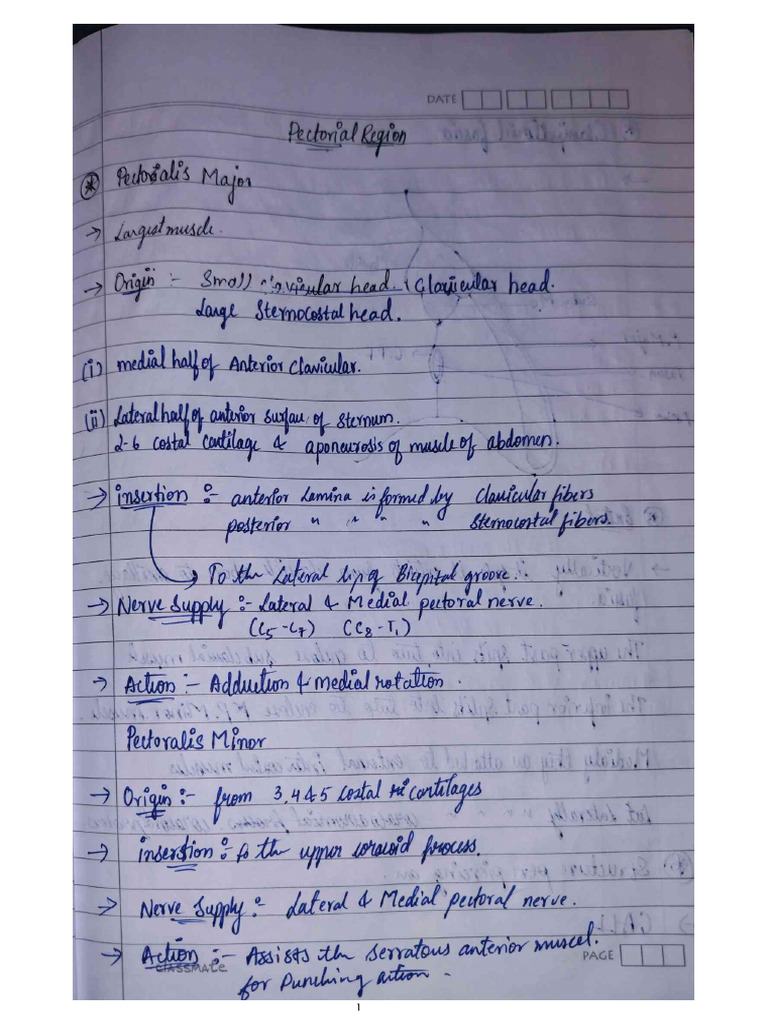 DATE
Pectorial Region
* Pectoralis Major
→ Largest muscle.
→ Origin :- Small clavicular head. Clavicular head.
Large Sternocostal head.
(i) medial half of Anterior Clavicular.
(ii) Lateral half of anterior surfau of sternum.
2-6 costal cartilage & aponeurosis of muscle of abdomen.
→ insertion :- anterior Lamina is formed by Clavicular fibers
posterior " " " " Sternocostal fibers.
→ To the Lateral lip of Bicipital groove.
→ Nerve Supply :- Lateral & Medial pectoral nerve.
(C5-C7) (C8-T1)
→ Action :- Adduction & medial rotation.
Pectoralis Minor
→ Origin :- from 3,4&5 costal cartilages
→ insertion :- to the upper coracoid process.
→ Nerve Supply :- Lateral & Medial pectoral nerve.
→ Action :- Assists the serratous anterior muscel.
for Punching action.
CLASSMATE
PAGE
1